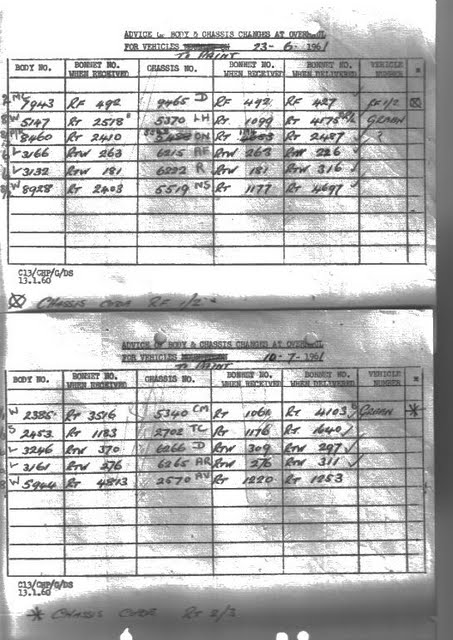 ADVICE OF BODY & CHASSIS CHANGES AT OVERHAUL
FOR VEHICLES TO PAINT 23-6-1961
BODY NO. BONNET NO. WHEN RECEIVED CHASSIS NO. BONNET NO. WHEN RECEIVED BONNET NO. WHEN DELIVERED VEHICLE NUMBER
7943 RF 492 9465 D RF 492 RF 427 RF 1/2
W 5147 RT 2578 5370 LH RT 1099 RT 4175 GREEN
8460 RT 2410 ON RT RT 2487 ?
L 3166 RTW 263 6215 AF RTW 263 RTW 226
L 3132 RTW 181 6222 R RTW 181 RTW 316
W 8928 RT 2403 5519 NS RT 1177 RT 4697
C13/CHP/G/DS
13.1.60
CHASSIS CODE RF 1/2
ADVICE OF BODY & CHASSIS CHANGES AT OVERHAUL
FOR VEHICLES TO PAINT 10-7-1961
BODY NO. BONNET NO. WHEN RECEIVED CHASSIS NO. BONNET NO. WHEN RECEIVED BONNET NO. WHEN DELIVERED VEHICLE NUMBER
W 2385 RT 3516 5340 CM RT 1061 RT 4103 GREEN *
S 2453 RT 1183 2702 TC RT 1176 RT 1640
L 3246 RTW 370 6266 D RTW 309 RTW 297
L 3161 RTW 276 6265 AR RTW 276 RTW 311
W 5944 RT 4813 2570 AV RT 1220 RT 1253
C13/CHP/G/DS
13.1.60
* CHASSIS CODE RT 2/3